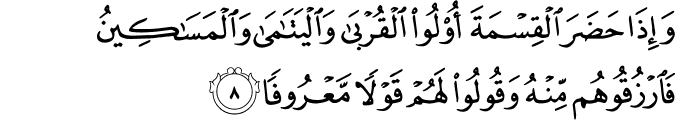 وَإِذَا حَضَرَ ٱلْقِسْمَةَ أُو۟لُوا۟ ٱلْقُرْبَىٰ وَٱلْيَتَٰمَىٰ وَٱلْمَسَٰكِينُ
فَٱرْزُقُوهُم مِّنْهُ وَقُولُوا۟ لَهُمْ قَوْلًا مَّعْرُوفًا ٨